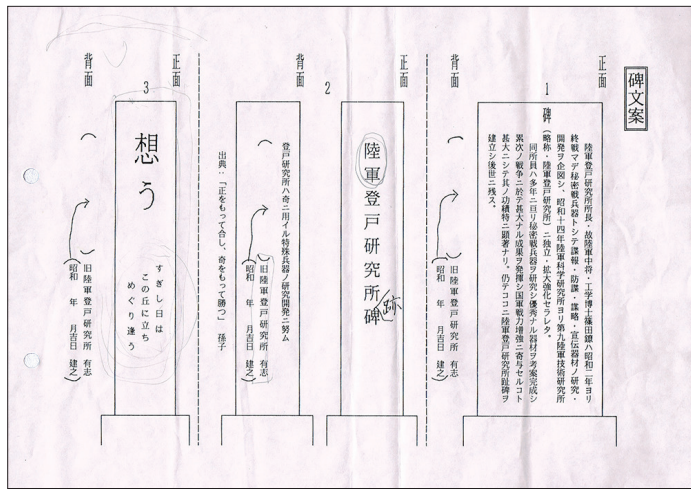 碑文案
正面
1
碑
陸軍登戸研究所所長・故陸軍中将・工学博士篠田鐐ハ昭和二年ヨリ
終戦マデ秘密戦兵器トシテ諜報・防諜・謀略・宣伝器材ノ研究・
開発ヲ企図シ、昭和十四年陸軍科学研究所ヨリ第九陸軍技術研究所
(略称・陸軍登戸研究所)ニ独立・拡大強化セラレタ。
同所員ハ多年ニ亘リ秘密戦兵器ヲ研究シ優秀ナル器材ヲ考案完成シ
累次ノ戦争ニ於テ甚大ナル成果ヲ発揮シ国軍戦力増強ニ寄与セルコト
甚大ニシテ其ノ功績特ニ顕著ナリ。仍テココニ陸軍登戸研究所趾碑ヲ
建立シ後世ニ残ス。
背面
旧陸軍登戸研究所 有志
(昭和 年 月吉日 建之)
正面
2
陸軍登戸研究所碑
跡
背面
登戸研究所ハ奇ニ用イル特殊兵器ノ研究開発ニ努ム
旧陸軍登戸研究所 有志
(昭和 年 月吉日 建之)
出典:「正をもって合し、奇をもって勝つ」 孫子
正面
3
想う
すぎし日は
この丘に立ち
めぐり逢う
背面
旧陸軍登戸研究所 有志
(昭和 年 月吉日 建之)